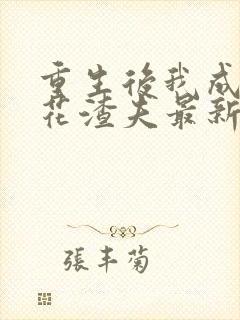 重生後我成
花渣夫最新
張丰菊